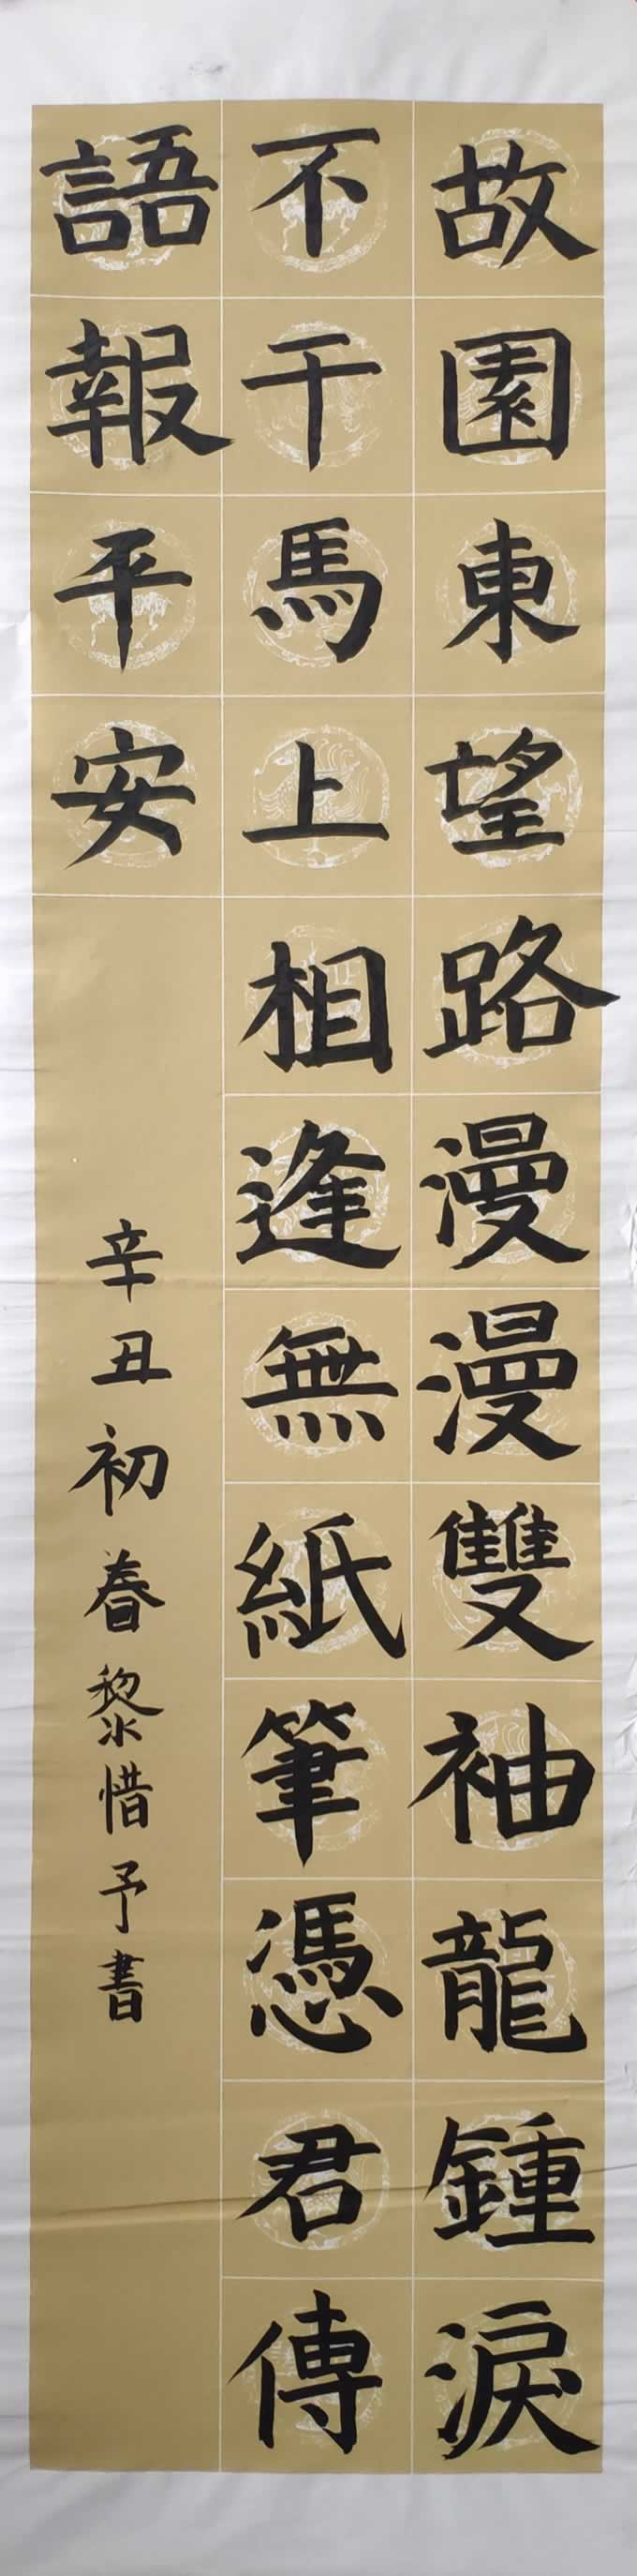 故園東望路漫漫雙袖龍鍾淚
不干馬上相逢無紙筆憑君傳
語報平安
辛丑初春黎惜予書